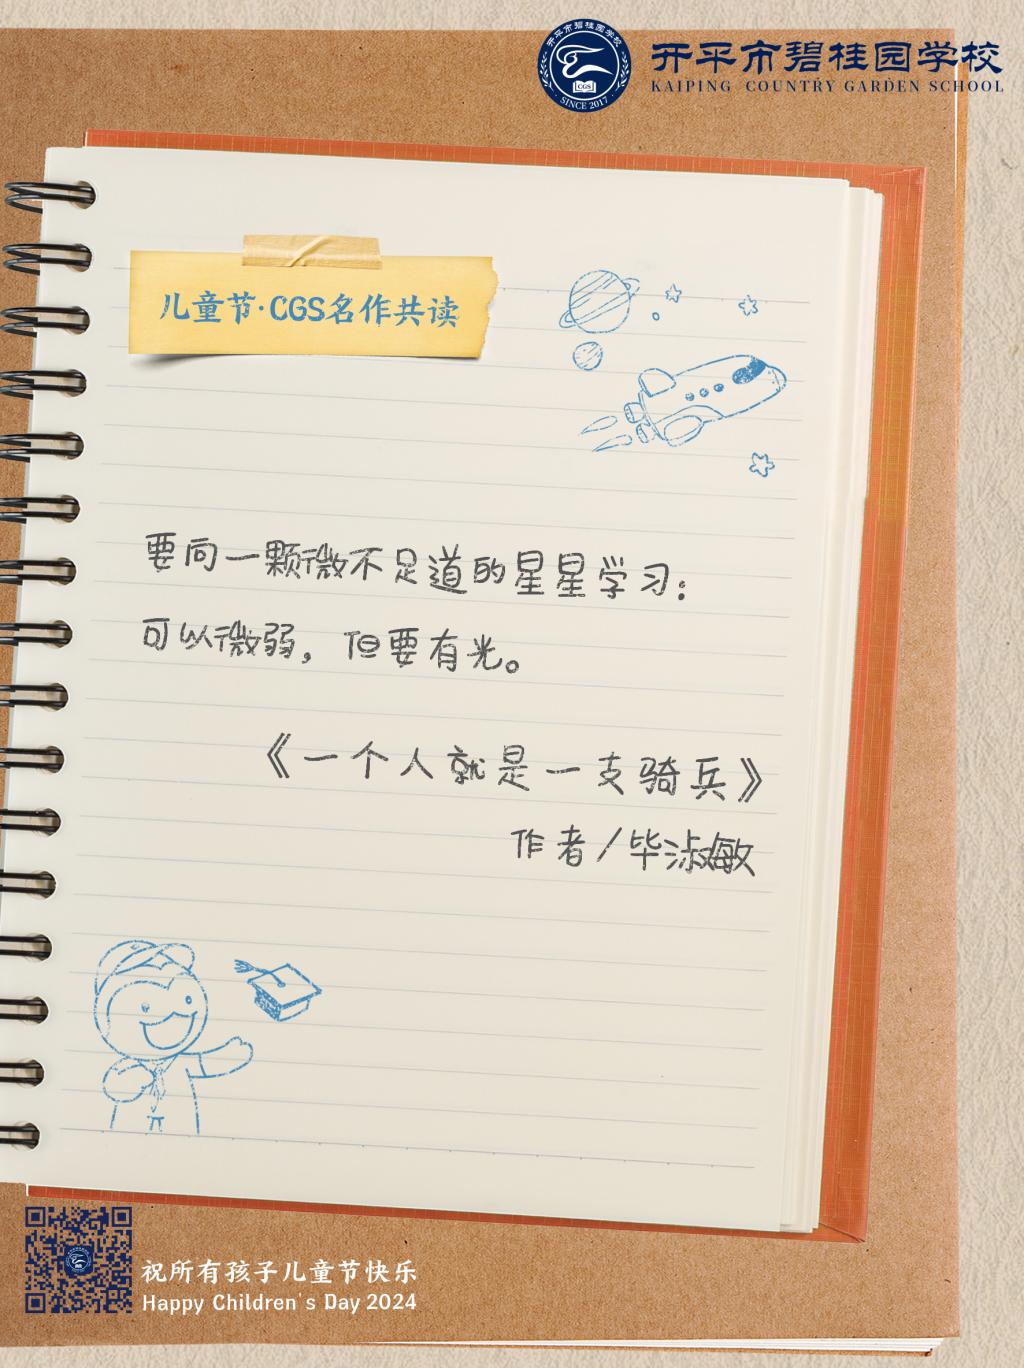 开平市碧桂园学校
KAIPING COUNTRY GARDEN SCHOOL
开平市碧桂园学校
CGS
SINCE 2017
儿童节·CGS名作共读
要向一颗微不足道的星星学习：
可以微弱，但要有光。
《一个人就是一支骑兵》
作者/毕淑敏
祝所有孩子儿童节快乐
Happy Children's Day 2024